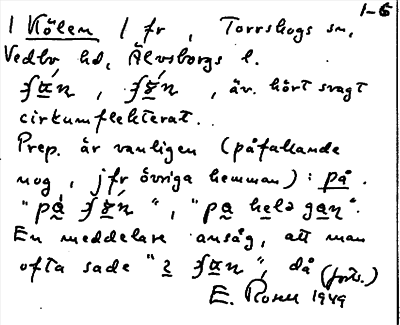 1-6
1 Kölen / fr, Torrskogs sn,
Vedbo hd, Älvsborgs l.
, äv. hört svagt
cirkumflekterat.
Prep. är vanligen (påfallande
nog, jfr övriga hemman): på.
En meddelare ansåg, att man
ofta sade " då (forts.)
E. 1949